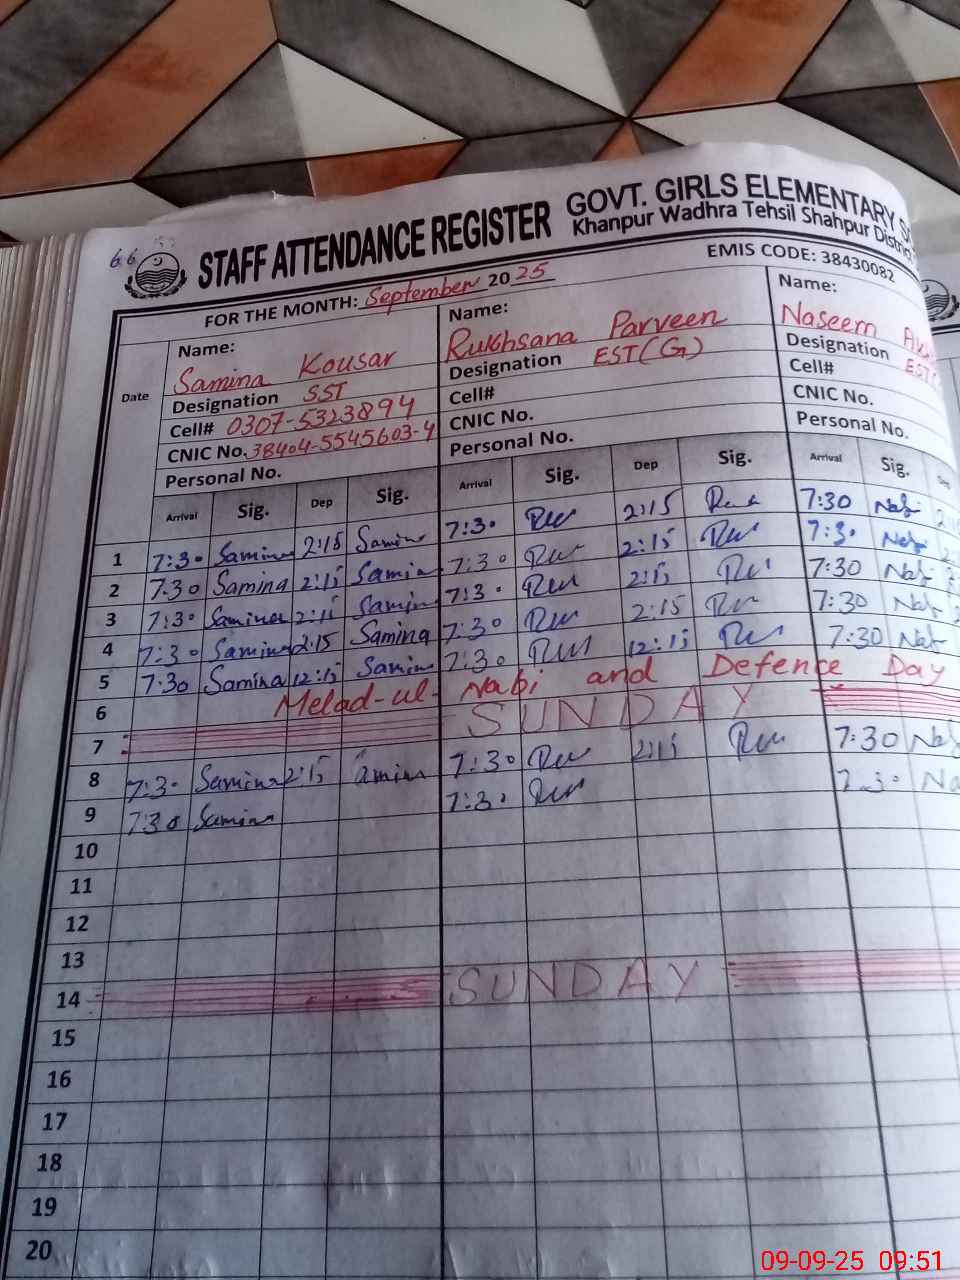 66
STAFF ATTENDANCE REGISTER GOVT. GIRLS ELEMENTARY
Khanpur Wadhra Tehsil Shahpur District
EMIS CODE: 38430082
FOR THE MONTH: September 2025
Date Name: Name: Name:
Samina Kousar Rukhsana Parveen Naseem
Designation SST Designation EST(G) Designation EST
Cell# 0307-5323894 Cell# Cell#
CNIC No. 38404-5545603-4 CNIC No. CNIC No.
Personal No. Personal No. Personal No.
Arrival Sig. Dep Sig. Arrival Sig. Dep Sig. Arrival Sig.
1 7:30 Samina 2:15 Samina 7:30 2:15 7:30
2 7:30 Samina 2:15 Samina 7:30 2:15 7:30
3 7:30 Samina 2:15 Samina 7:30 2:15 7:30
4 7:30 Samina 2:15 Samina 7:30 2:15 7:30
5 7:30 Samina 12:15 Samina 7:30 12:15 7:30
6 Melad-ul-Nabi and Defence Day
7 SUNDAY
8 7:30 Samina 2:15 amina 7:30 2:15 7:30
9 7:30 Samina 7:30 7:30
10
11
12
13
14 SUNDAY
15
16
17
18
19
20
09-09-25 09:51